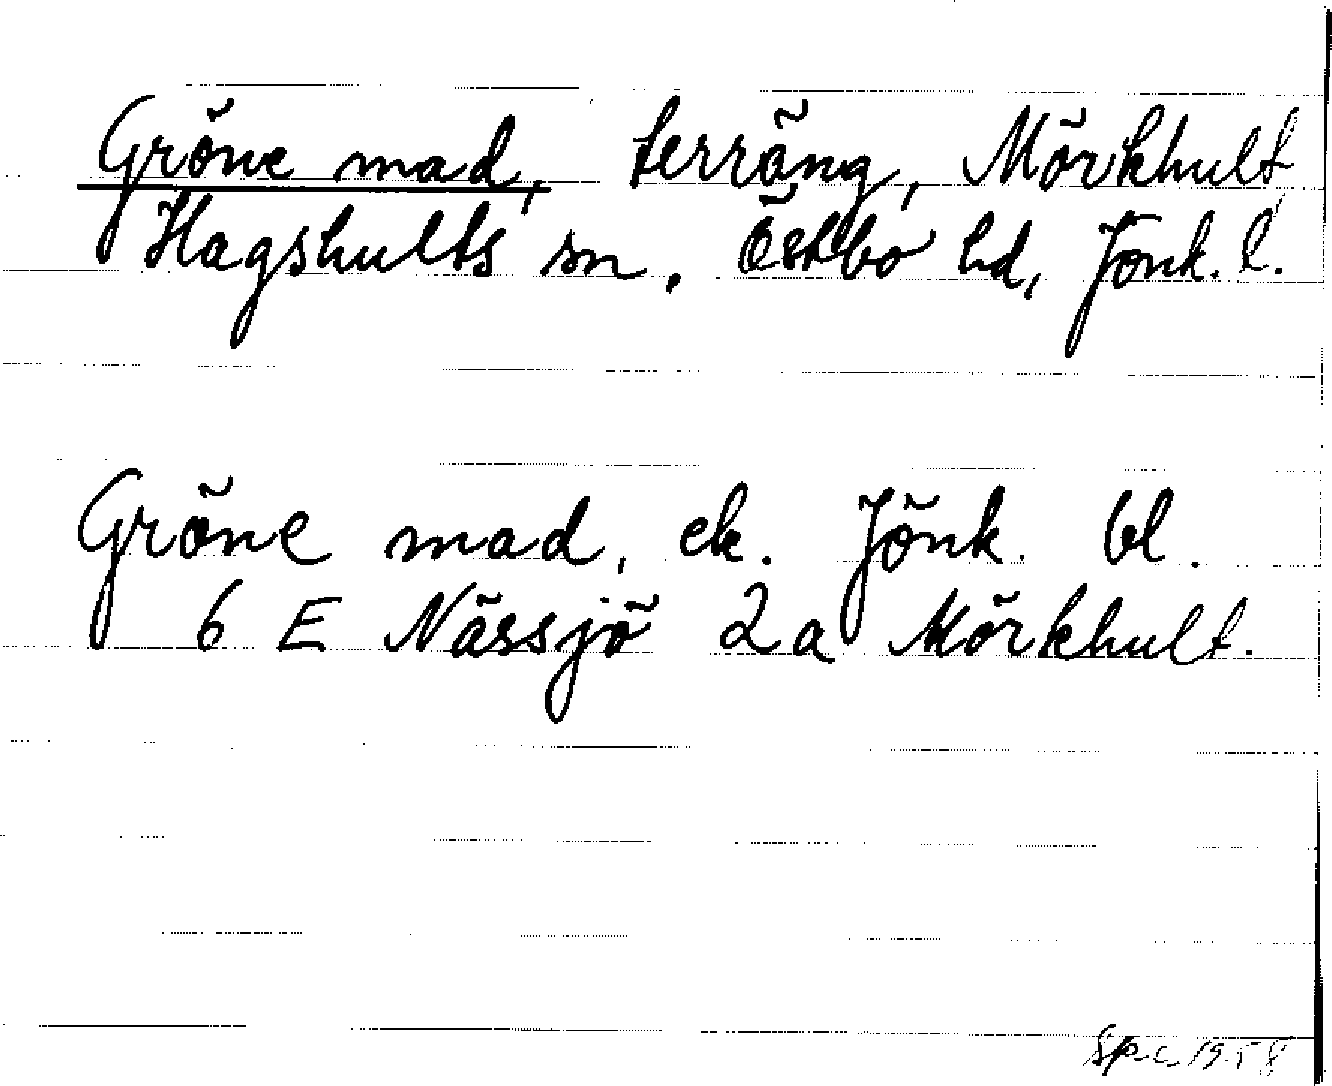 Gröne mad, terräng, Mörkhult,
Hagshults sn, Östbo hd, Jönk. l.
Gröne mad, ek. Jönk. bl.
6 E Nässjö 2a Mörkhult.
1958